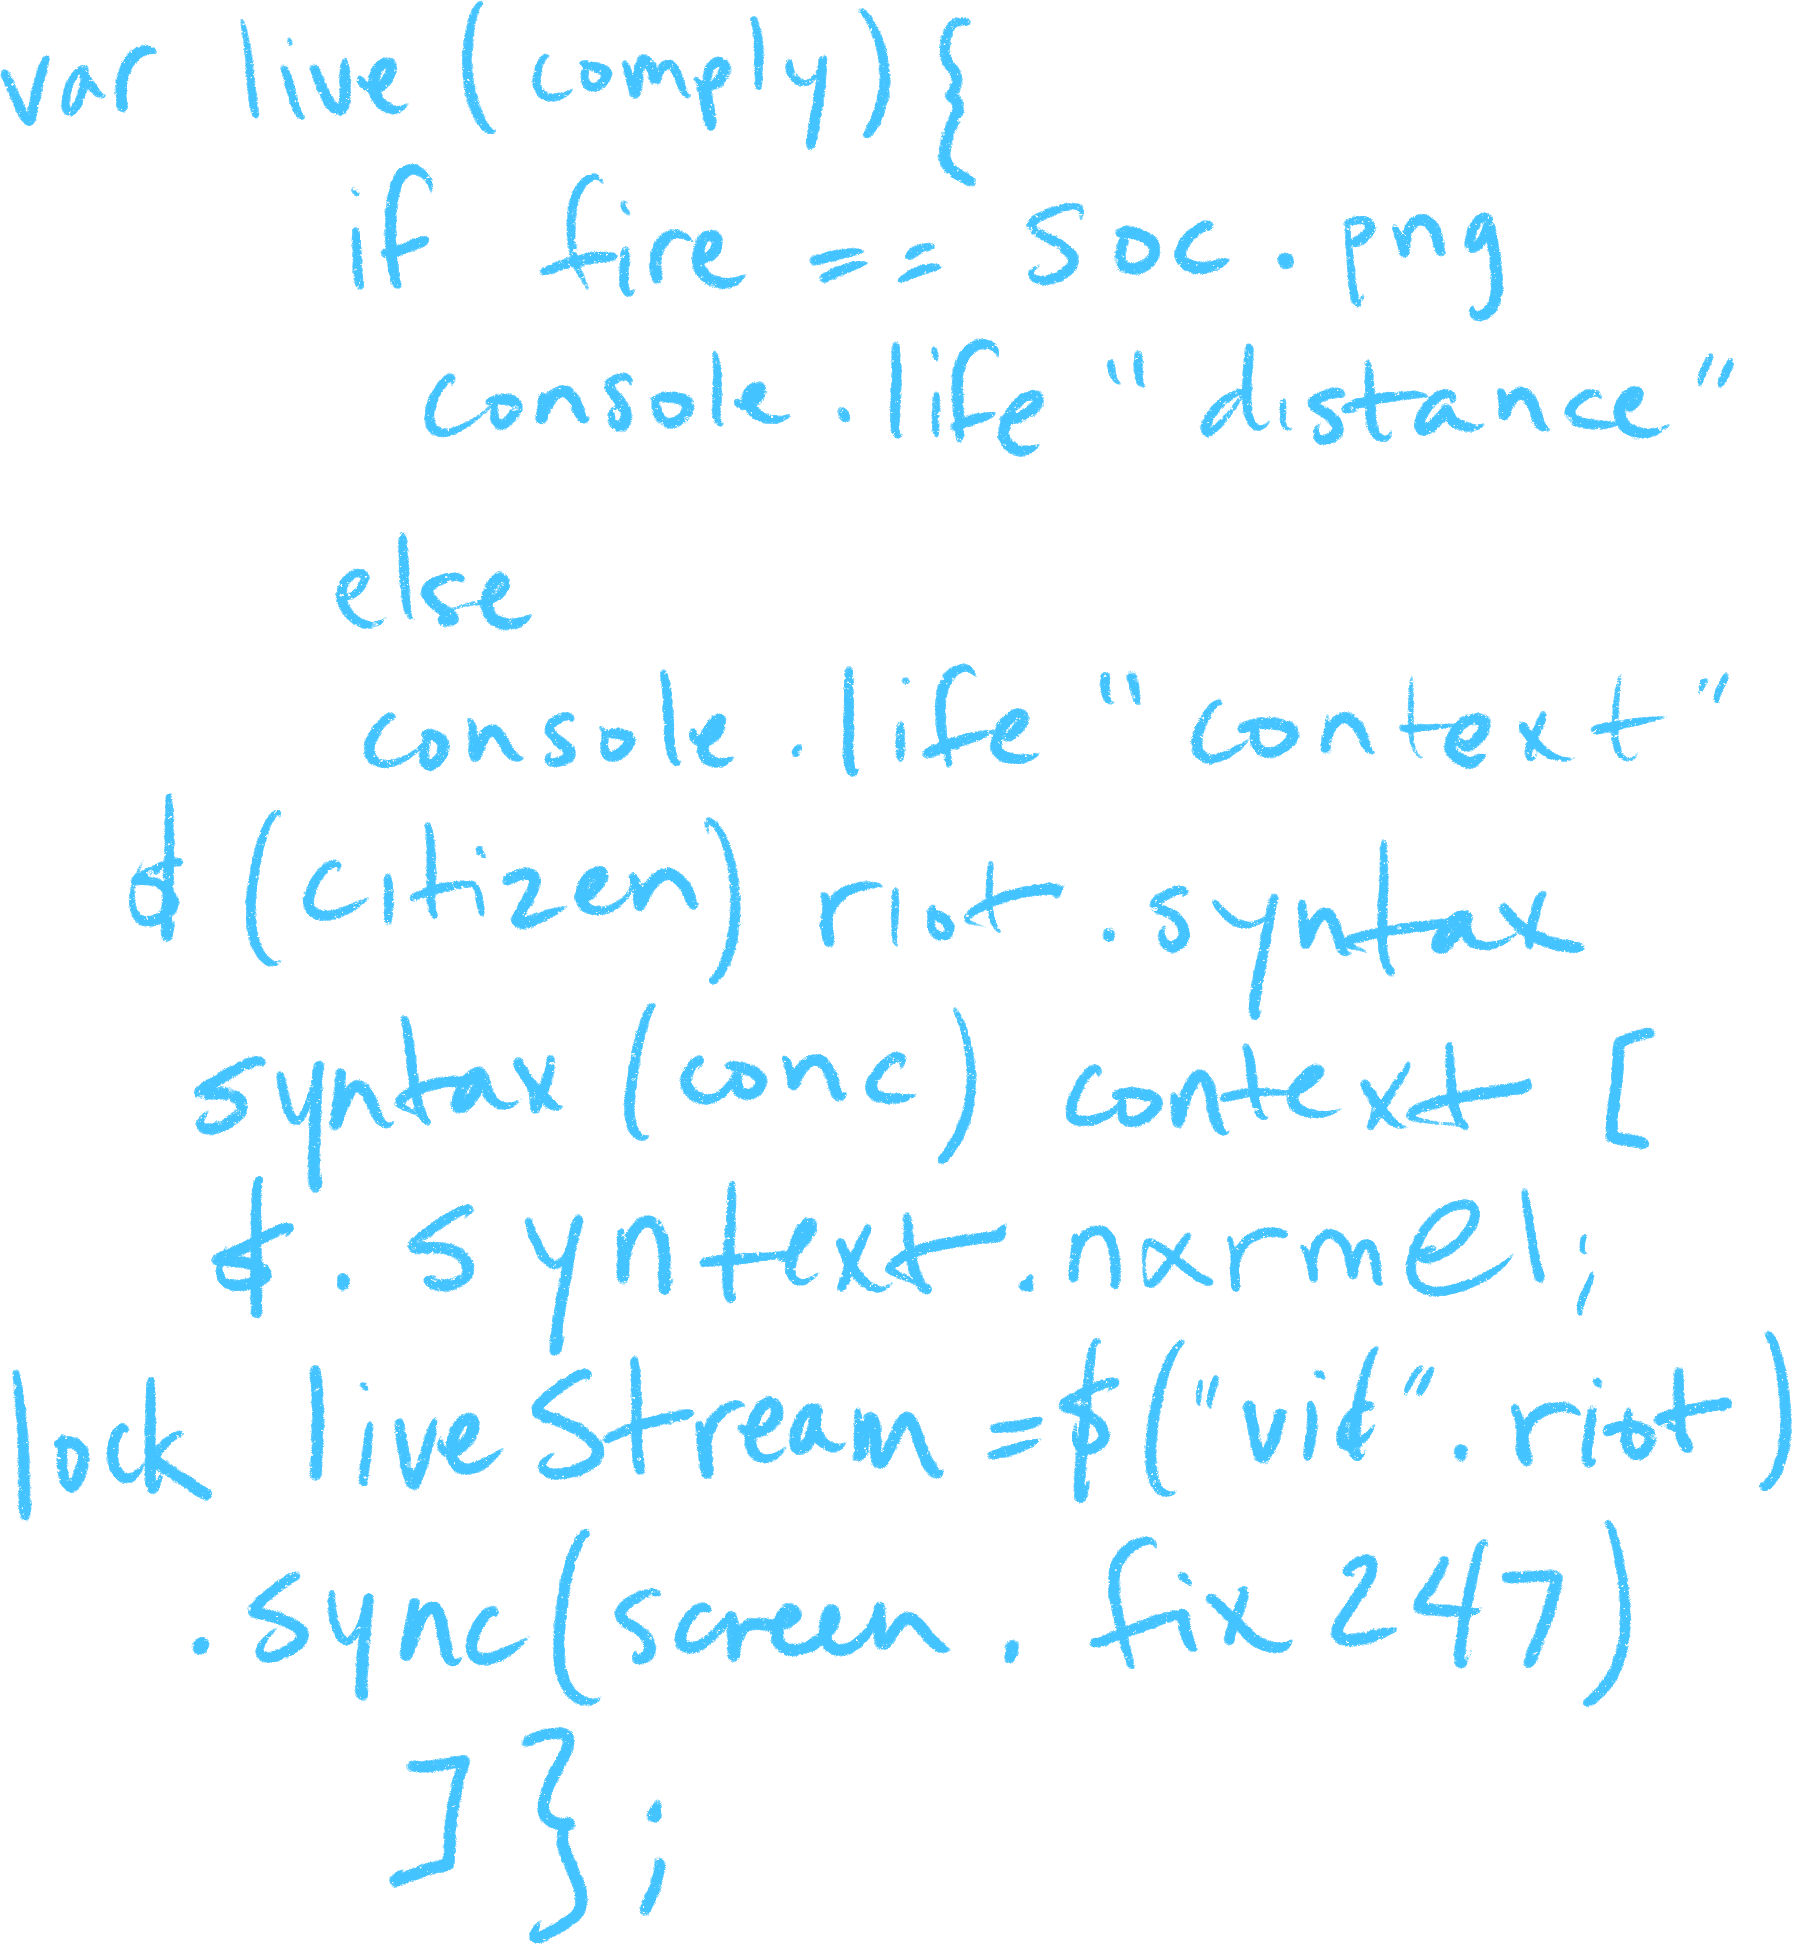 var live (comply) {
if fire == soc.png
console.life "distance"
else
console.life "context"
$ (citizen) riot.syntax
syntax (conc) context [
$.syntext.nxrmel;
lock liveStream =$("vid".riot)
.sync(screen.fix247)
]};